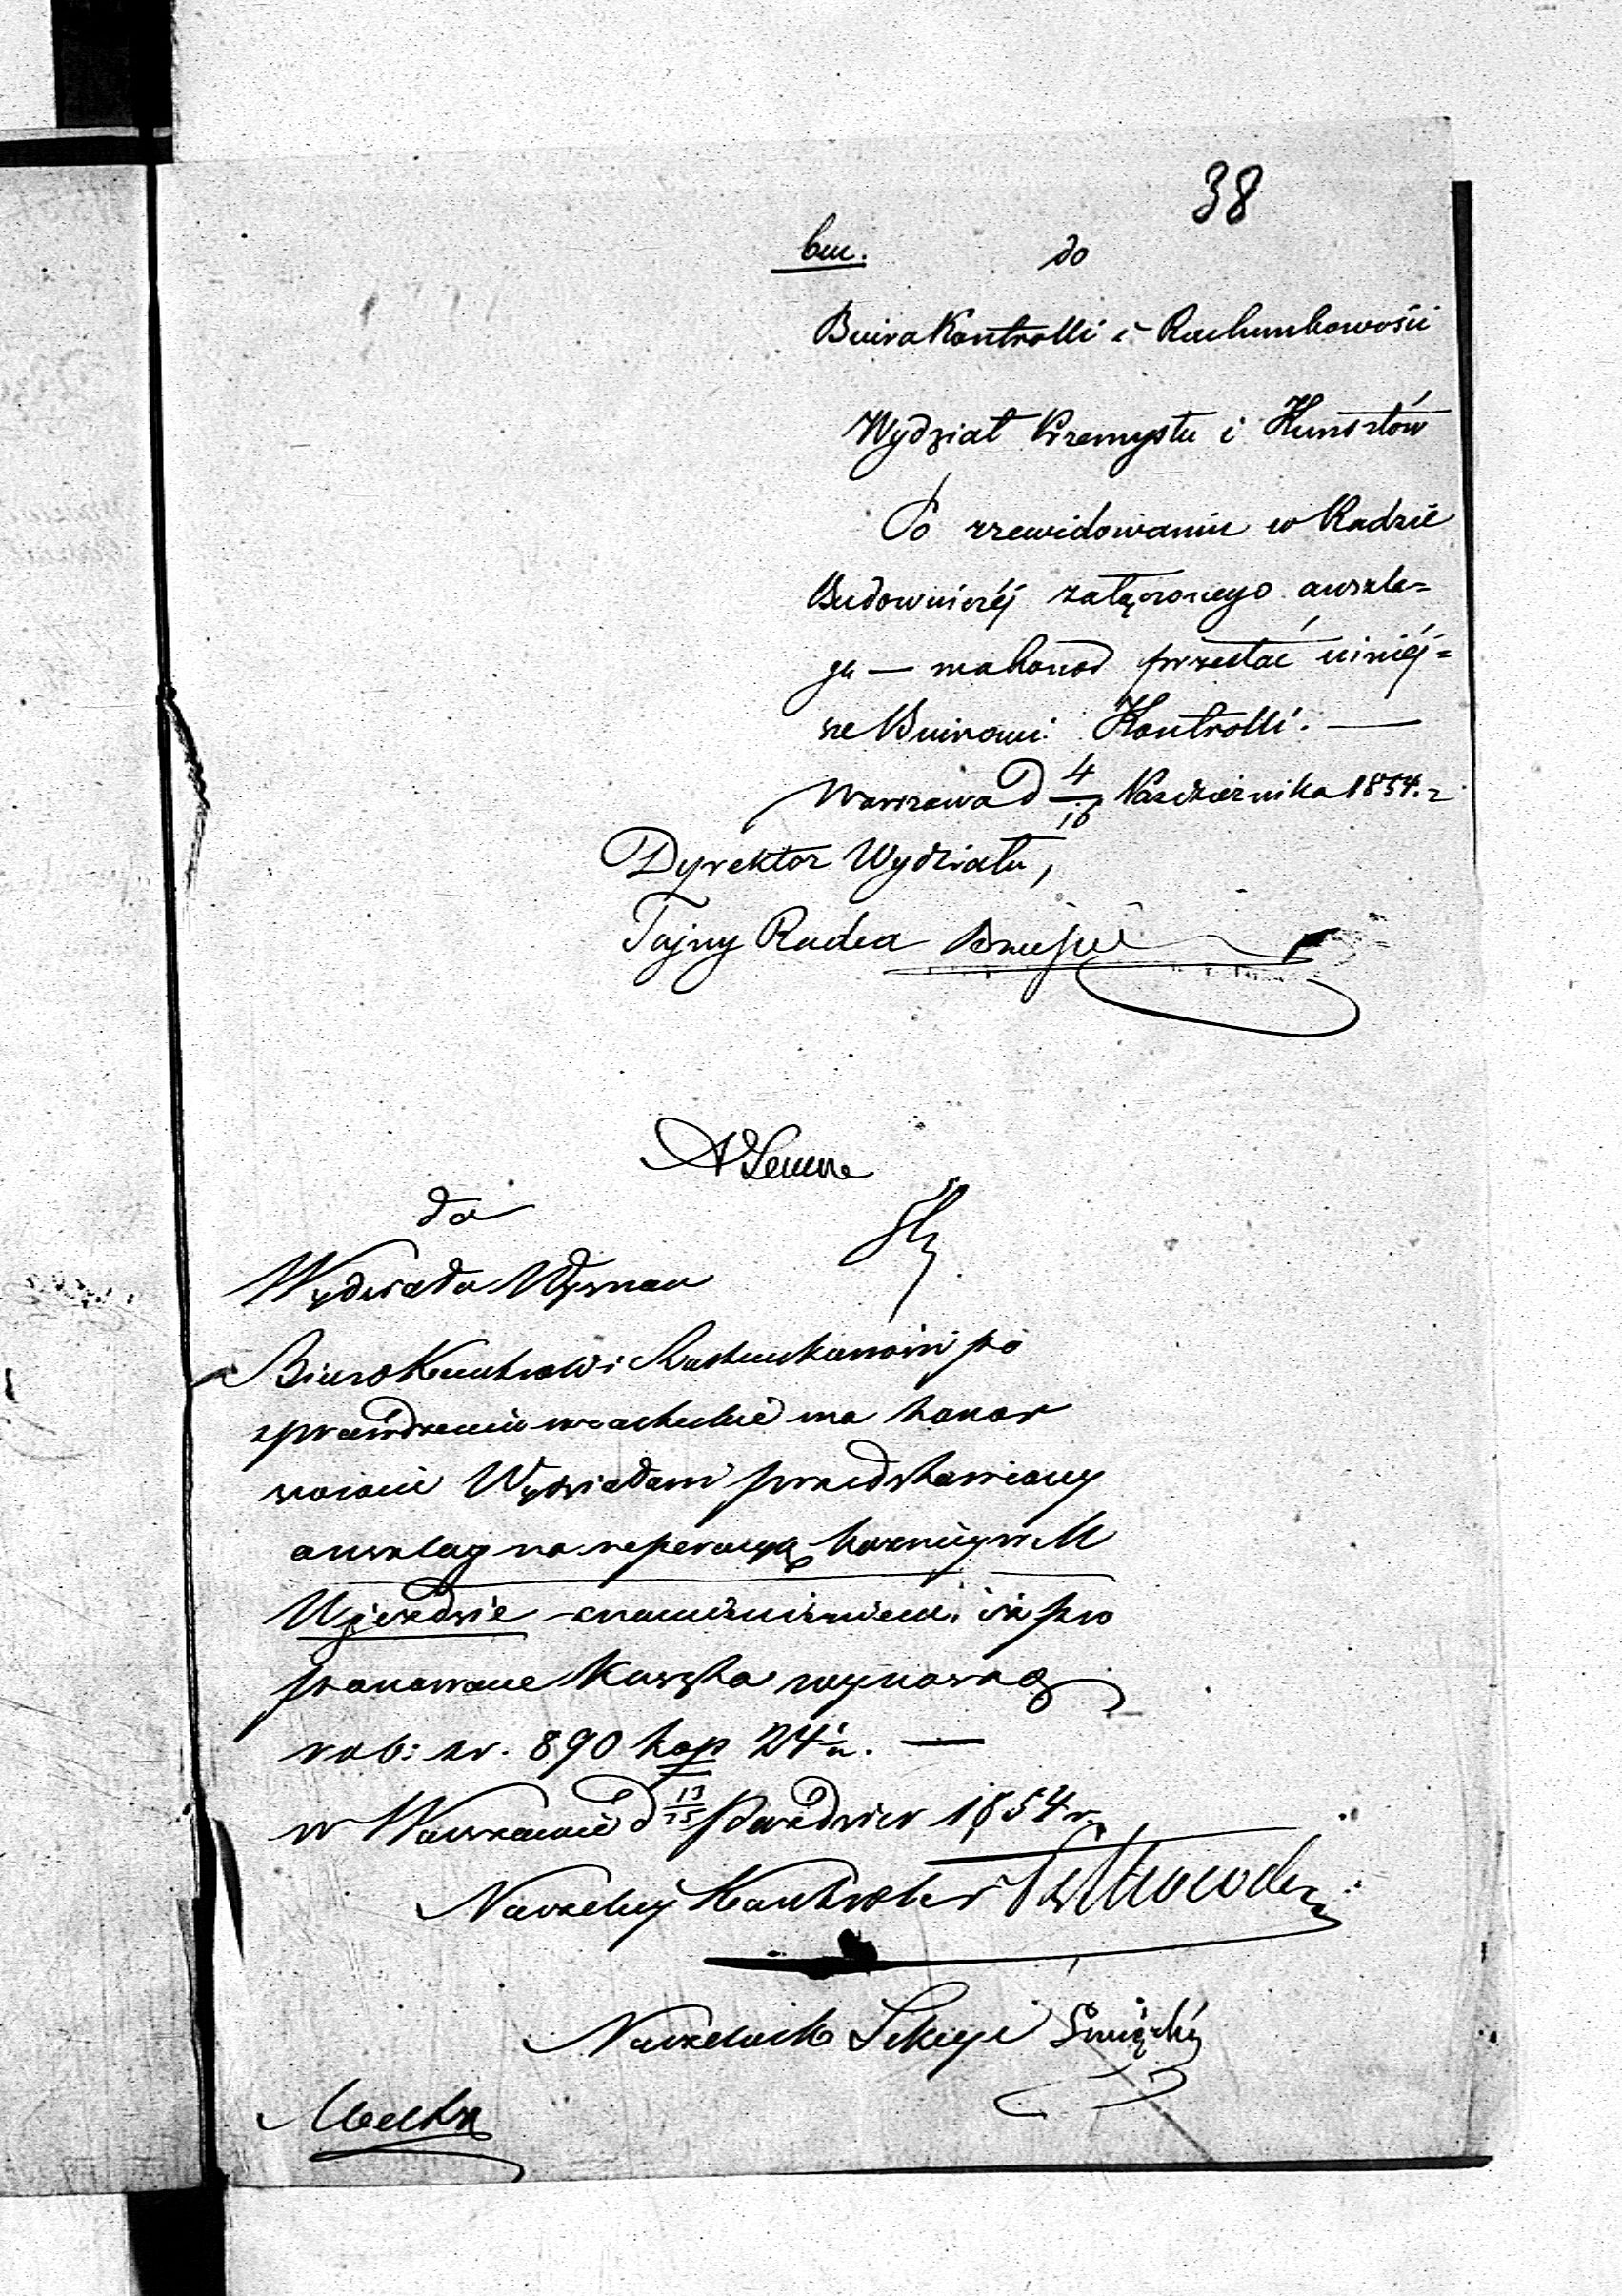 38
bm. do
Biura Kontrolli i Rachunkowości
Wydział Przemysłu i Kunsztów
Po zrewidowaniu w Radzie
Budowniczéj załączonego anszla=
gu — ma honor przesłać niniéj=
sze Biurowi Kontrolli. —
Warszawa d 4/16 Października 1854. r
Dyrektor Wydziału,
Tajny Radca
do
Wydziału Tegoż
Biuro Kontroli i Rachunkowości po
sprawdzeniu w rachubie ma honor
zwrócić Wydziałowi przedstawiony
anszlag na reperacyą koszar w M
Ujeździe z nadmienieniem, iż pro
ponowane koszta wynoszą
rub: sr. 890 kop 24½. —
w Warszawie d 13/25 Paździer 1854 r.
Naczelny Kontroler
Naczelnik Sekcyi